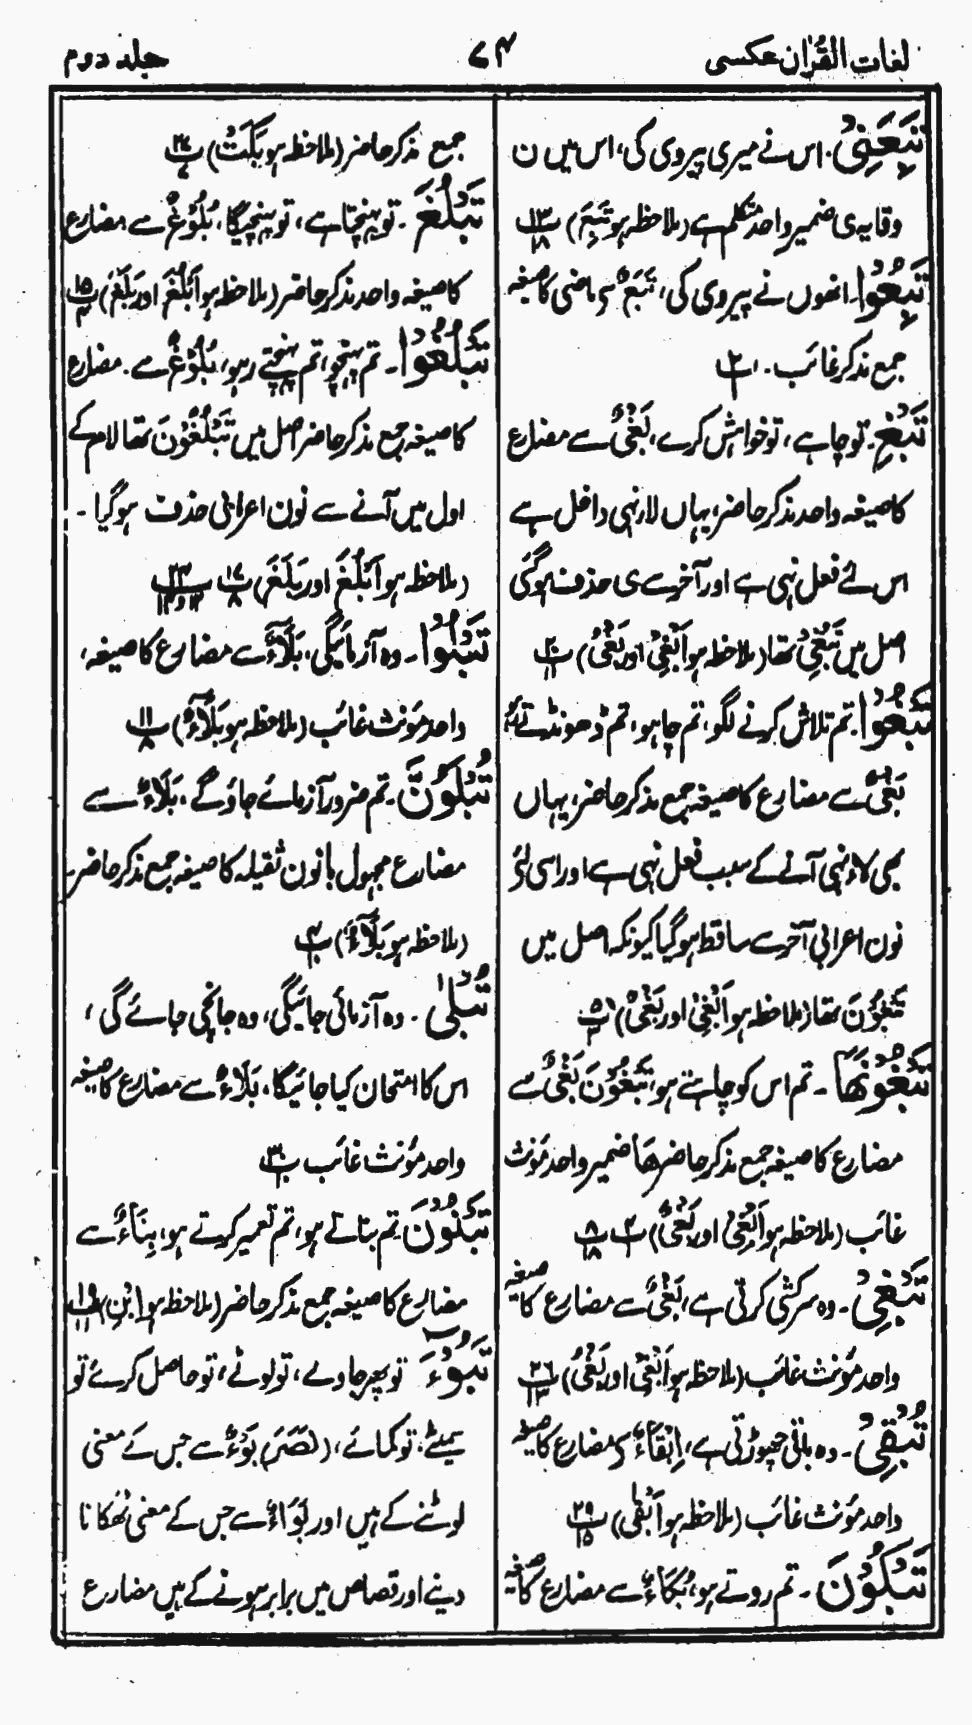 لغات القرآن عکسی
۷۴
جلد دوم
تَبِعَنِیْ. اس نے میری پیروی کی، اس میں ن
وقایہ ی ضمیر واحد متکلم ہے (ملاحظہ ہو تَبِعَ) پ ۱۳/۱۸
تَبِعُوْا۔ انھوں نے پیروی کی، تَبَعٌ سے ماضی کا صیغہ
جمع مذکر غائب۔ پ
تَبْغِ۔ تو چاہے، تو خواہش کرے، بَغْیٌ سے مضارع
کا صیغہ واحد مذکر حاضر، یہاں لاء نہی داخل ہے
اس لئے فعل نہی ہے اور آخر سے ی حذف ہوگئی
اصل میں تَبْغِیْ تھا (ملاحظہ ہو اَبْغِیْ اور بَغْیٌ) پ ۲۰/۱۱
تَبْغُوْا۔ تم تلاش کرنے لگو، تم چاہو، تم ڈھونڈتے ہو
بَغْیٌ سے مضارع کا صیغہ جمع مذکر حاضر، یہاں
بھی لاء نہی آنے کے سبب فعل نہی ہے اور اسی لئے
نون اعرابی آخر سے ساقط ہوگیا کیونکہ اصل میں
تَبْغُوْنَ تھا (ملاحظہ ہو اَبْغِیْ اور بَغْیٌ) پ
تَبْغُوْنَهَا۔ تم اس کو چاہتے ہو، تَبْغُوْنَ بَغْیٌ سے
مضارع کا صیغہ جمع مذکر حاضر ھَا ضمیر واحد مؤنث
غائب (ملاحظہ ہو اَبْغِیْ اور بَغْیٌ) پ پ ۸/۱۸
تَبْغِیْ۔ وہ سرکشی کرتی ہے، بَغْیٌ سے مضارع کا صیغہ
واحد مؤنث غائب (ملاحظہ ہو اَبْغِیْ اور بَغْیٌ) پ ۲۶/۱۳
تُبْقِیْ۔ وہ باقی چھوڑتی ہے، اِبْقَاءٌ سے مضارع کا صیغہ
واحد مؤنث غائب (ملاحظہ ہو اَبْقٰی) پ ۲۹/۱۵
تَبْكُوْنَ۔ تم روتے ہو، بُکَاءٌ سے مضارع کا صیغہ
جمع مذکر حاضر (ملاحظہ ہو بَکَتْ) پ
تَبْلُغَ۔ تو پہنچتا ہے، تو پہنچیگا، بُلُوْغٌ سے مضارع
کا صیغہ واحد مذکر حاضر (ملاحظہ ہو اَبْلُغَ اور بَلَغَ) پ
تَبْلُغُوْا۔ تم پہنچو، تم پہنچتے رہو، بُلُوْغٌ سے۔ مضارع
کا صیغہ جمع مذکر حاضر اصل میں تَبْلُغُوْنَ تھا لام کے
اول میں آنے سے نون اعرابی حذف ہوگیا۔
(ملاحظہ ہو اَبْلُغَ اور بَلَغَ) پ ۱۷/۸ پ
تَبْلُوْا۔ وہ آزمائیگی، بَلَاءٌ سے مضارع کا صیغہ،
واحد مؤنث غائب (ملاحظہ ہو بَلَاءٌ) پ ۱۱/۸
تُبْلَوُنَّ۔ تم ضرور آزمائے جاؤگے، بَلَاءٌ سے
مضارع مجہول بانون ثقیلہ کا صیغہ جمع مذکر حاضر۔
(ملاحظہ ہو بَلَاءٌ) پ
تُبْلٰی۔ وہ آزمائی جائیگی، وہ جانچی جائے گی،
اس کا امتحان کیا جائیگا، بَلَاءٌ سے مضارع کا صیغہ
واحد مؤنث غائب پ
تَبْنُوْنَ۔ تم بناتے ہو، تم تعمیر کرتے ہو، بِنَاءٌ سے
مضارع کا صیغہ جمع مذکر حاضر (ملاحظہ ہو اِبْنِ) پ ۱۹/۱۱
تَبُوْءَ تو پھر جاوے، تو لوٹے، تو حاصل کرے تو
سمیٹے، تو کمائے، (نَصَرَ) بَوْءٌ سے جس کے معنی
لوٹنے کے ہیں اور بَوَاءٌ سے جس کے معنی ٹھکانا
دینے اور قصاص میں برابر ہونے کے ہیں مضارع